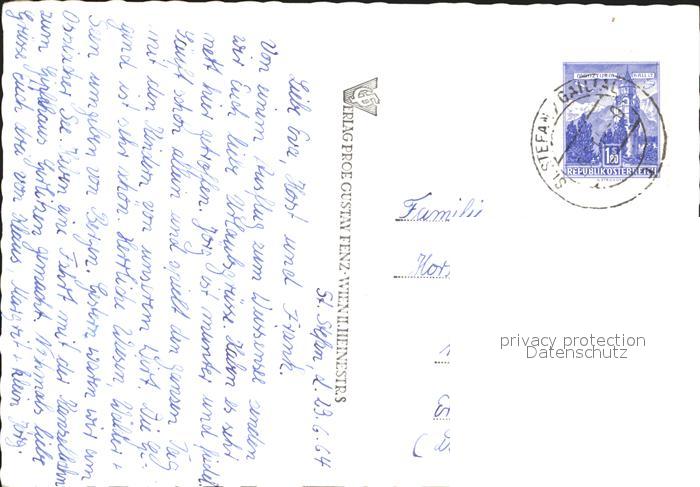 St. Stefan, d. 23.6.64
Liebe Eva, Horst und Frank.
Von einem Ausflug zum Weissensee senden
wir Euch liebe Urlaubsgrüsse. Haben es sehr
nett hier getroffen. Jörg ist munter und fidel
läuft schon allein und spielt den ganzen Tag
mit den Kindern von unserem Wirt. Die Ge-
gend ist sehr schön. Herrliche Wiesen, Wälder +
Seen umgeben von Bergen. Gestern waren wir am
Ossiacher See. Haben eine Fahrt mit der Kanzelbahn
zum Gipfelhaus Gerlitzen gemacht. Nochmals liebe
Grüsse Euch drei von Klaus Margret + klein Jörg.
VERLAG PROF. GUSTAV FENZ · WIEN II, HEINESTR. 8
Familie
Hors
(
ST. STEFAN / GAILTAL
1.80
REPUBLIK ÖSTERREICH
privacy protection
Datenschutz